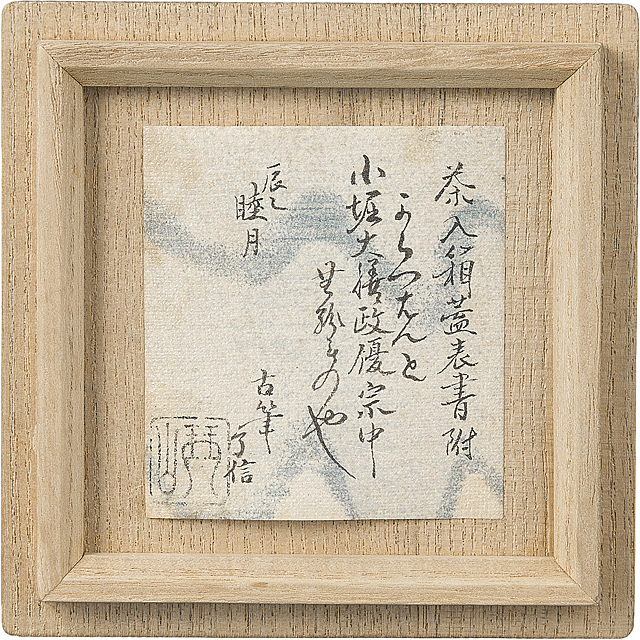 茶入箱蓋表書附
からつたんと
小堀大膳政優宗中
無紛もの也
辰之
睦月
古筆
了信
琴山